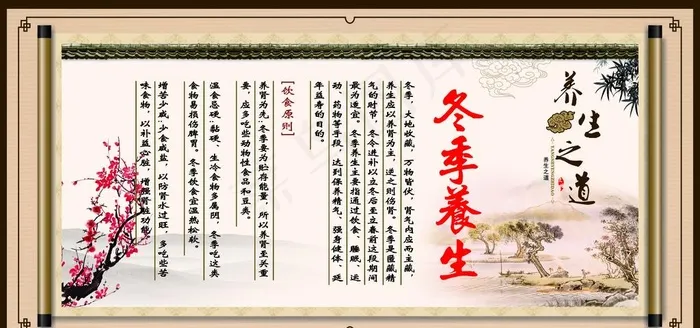 养生之道
养生之道
冬季養生
冬季，大地收藏，万物皆伏，肾气内应而主藏，
养生应以养肾为主，逆之则伤肾。冬季是匿藏精
气的时节，冬令进补以立冬后至立春前这段期间
最为适宜。冬季养生主要指通过饮食、睡眠、运
动、药物等手段，达到保养精气、强身健体、延
年益寿的目的。
[饮食原则]
养肾为先：冬季要为贮存能量，所以养肾至关重
要，应多吃些动物性食品和豆类。
温食忌硬：黏硬、生冷食物多属阴，冬季吃这类
食物易损伤脾胃。冬季饮食宜温热松软。
增苦少咸，少食咸盐，以防肾水过旺，多吃些苦
味食物，以补益心脏，增强肾脏功能。